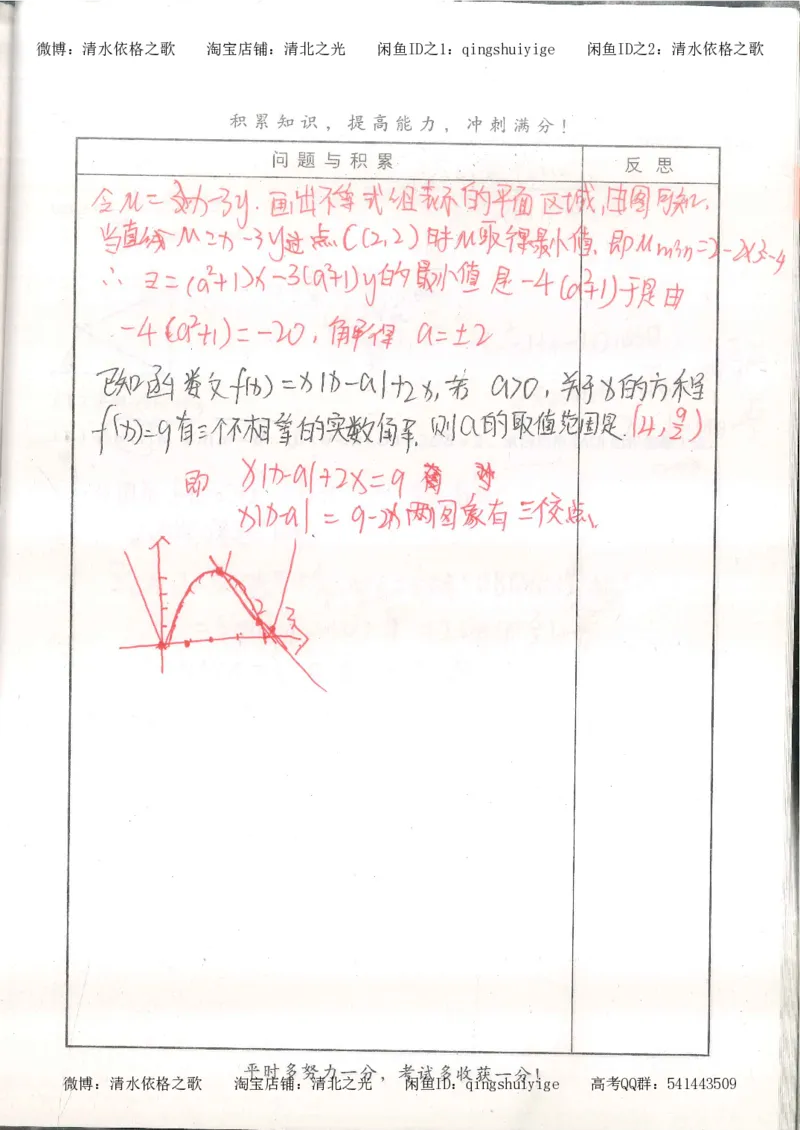 微博：清水依格之歌 淘宝店铺：清北之光 闲鱼ID之1：qingshuiyige 闲鱼ID之2：清水依格之歌
积累知识，提高能力，冲刺满分！
问题与积累 反思
令u=x-3y.画出不等式组表示的平面区域,由图可知,
当直线u=x-3y过点C(2,2)时u取得最小值,即umin=2-2×3=-4
∴ z=(a²+1)x-3(a²+1)y的最小值是-4(a²+1)于是由
-4(a²+1)=-20,解得 a=±2
已知函数f(x)=x|x-a|+2x,若 a>0,关于x的方程
f(x)=9有三个不相等的实数解,则a的取值范围是.(4,9/2)
即 x|x-a|+2x=9
x|x-a|=9-2x两图象有三个交点.
2 3
平时多努力一分，考试多收获一分！
微博：清水依格之歌 淘宝店铺：清北之光 闲鱼ID：qingshuiyige 高考QQ群：541443509